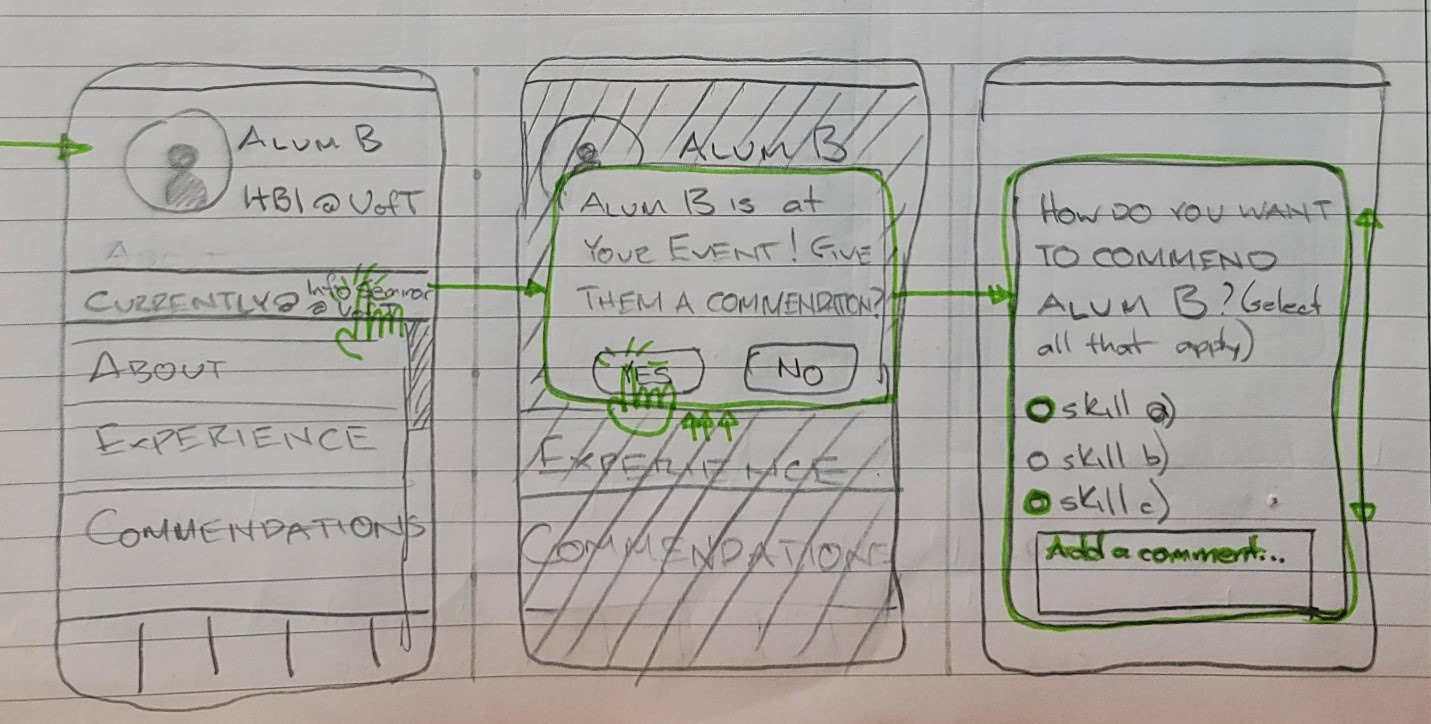 ALUM B
HBI @ UofT
CURRENTLY @ Info Seminar
@
ABOUT
EXPERIENCE
COMMENDATIONS
ALUM B
ALUM B IS at
YOUR EVENT! GIVE
THEM A COMMENDATION?
YES
NO
EXPERIENCE
COMMENDATIONS
HOW DO YOU WANT
TO COMMEND
ALUM B? (select
all that apply)
skill a)
skill b)
skill c)
Add a comment...